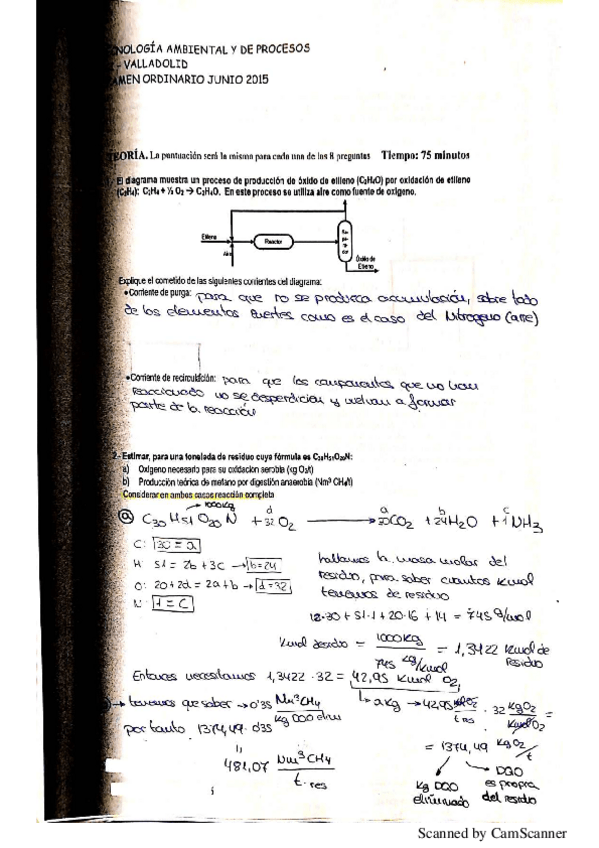 NOLOGÍA AMBIENTAL Y DE PROCESOS
- VALLADOLID
AMEN ORDINARIO JUNIO 2015
TEORÍA. La puntuación será la misma para cada una de las 8 preguntas Tiempo: 75 minutos
El diagrama muestra un proceso de producción de óxido de etileno (C₂H₄O) por oxidación de etileno
(C₂H₄): C₂H₄ + ½ O₂ → C₂H₄O. En este proceso se utiliza aire como fuente de oxígeno.
Etileno
Aire
Reactor
Se
pa
ra
dor
Óxido de
Etileno
Explique el cometido de las siguientes corrientes del diagrama:
•Corriente de purga: para que no se produzca acumulación, sobre todo
de los elementos inertes como es el caso del Nitrogeno (aire)
•Corriente de recirculación: para que los componentes que no han
reaccionado no se desperdicien y vuelvan a formar
parte de la reacción
2- Estimar, para una tonelada de residuo cuya fórmula es C₃₀H₅₁O₂₀N:
a) Oxígeno necesario para su oxidación aerobia (kg O₂/t)
b) Producción teórica de metano por digestión anaerobia (Nm³ CH₄/t)
Considerar en ambos casos reacción completa
→ 1000kg
a C₃₀H₅₁O₂₀N + d 32 O₂ → a 30 CO₂ + b 24 H₂O + c 1 NH₃
C: 30 = a
H: 51 = 2b + 3c → b = 24
O: 20 + 2d = 2a + b → d = 32
N: 1 = c
hallamos la masa molar del
residuo, para saber cuantos kmol
tenemos de residuo
12·30 + 51·1 + 20·16 + 14 = 745 g/mol
Kmol residuo = 1000kg / 745 kg/kmol = 1,3422 kmol de residuo
Entonces necesitamos 1,3422 · 32 = 42,95 kmol O₂
↳ a kg → 42,95 kmol O₂ / t res · 32 kg O₂ / kmol O₂ =
→ tenemos que saber → 0'35 Nm³ CH₄ / kg DQO elim
por tanto 1374,49 · 0'35
= 1374,49 kg O₂ / t
481,07 Nm³ CH₄ / t · res
kg DQO
eliminado
DQO
es propia
del residuo
Scanned by CamScanner